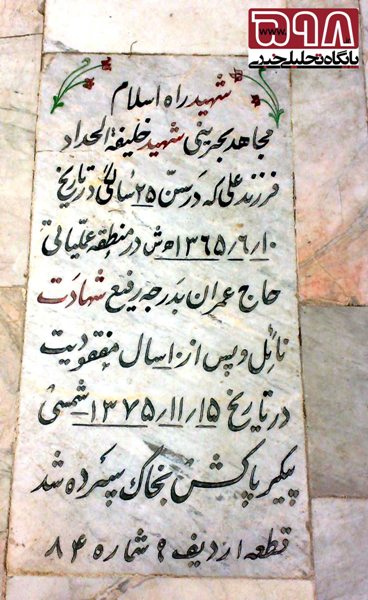 ۵۹۸
www.
پایگاه تحلیلی خبری
شهید راه اسلام
مجاهد بحرینی شهید خلیفة الحداد
فرزند علی که در سن ۲۵ سالگی در تاریخ
۱۳۶۵/۶/۱۰ ه ش در منطقه عملیاتی
حاج عمران بدرجه رفیع شهادت
نائل و پس از ۱۰ سال مفقودیت
در تاریخ ۱۳۷۵/۱۱/۱۵ شمسی
پیکر پاکش بخاک سپرده شد
قطعه ۱ ردیف ۹ شماره ۸۴